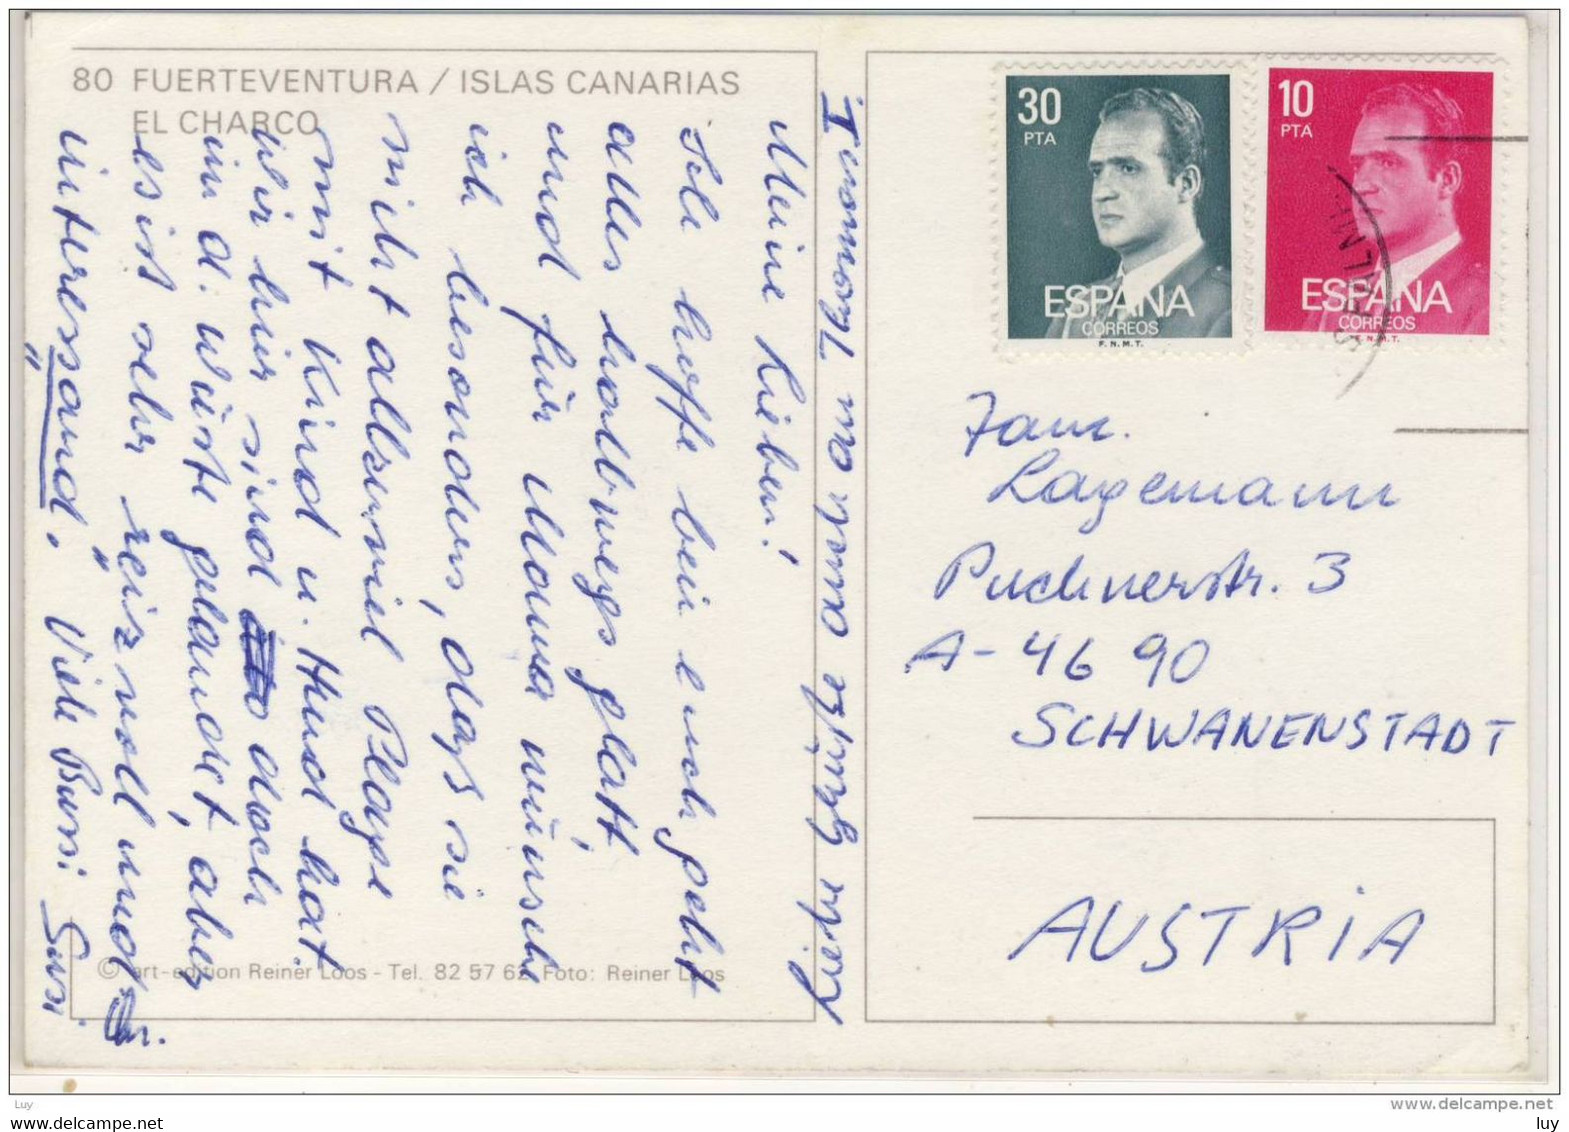 80 FUERTEVENTURA / ISLAS CANARIAS
EL CHARCO
Meine Lieben!
Ich hoffe bei euch geht
alles halbwegs glatt,
und für Mama wünsche
ich besonders, daß sie
nicht allzuviel Plage
mit Kind u. Hund hat.
Wir hier sind doch
in d. Wüste gelandet, aber
es ist sehr "reizvoll und
interessand". Viele Bussi Susi
liebe Grüße auch an
30
PTA
ESPAÑA
CORREOS
F. N. M. T.
10
PTA
ESPAÑA
CORREOS
F. N. M. T.
Fam.
Lagemann
Puchnerstr. 3
A-4690
SCHWANENSTADT
AUSTRIA
© art-edition Reiner Loos - Tel. 82 57 62 Foto: Reiner Loos
Luy
www.delcampe.net
luy